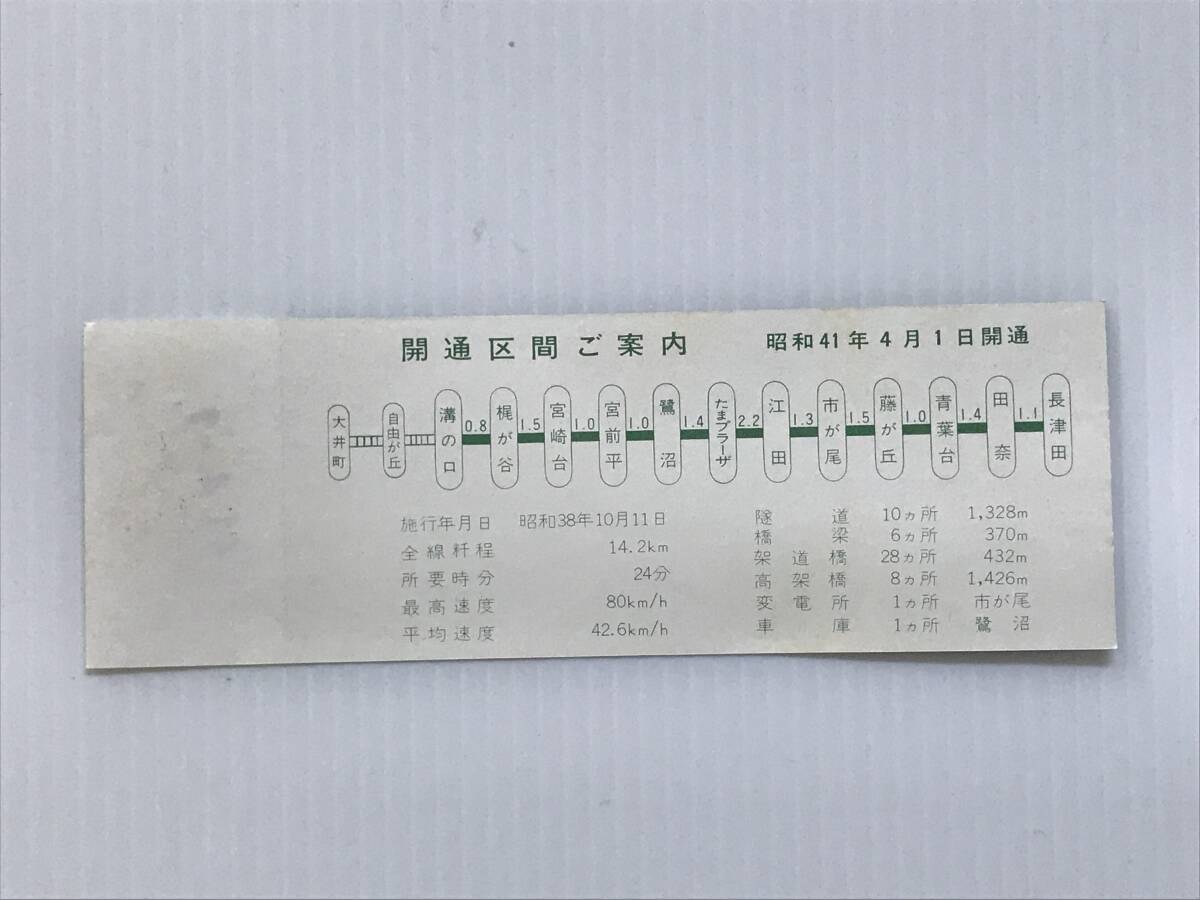 開通区間ご案内
昭和41年4月1日開通
大井町 自由が丘 溝の口 0.8 梶が谷 1.5 宮崎台 1.0 宮前平 1.0 鷺沼 1.4 たまプラーザ 2.2 江田 1.3 市が尾 1.5 藤が丘 1.0 青葉台 1.4 田奈 1.1 長津田
施行年月日 昭和38年10月11日
全線粁程 14.2km
所要時分 24分
最高速度 80km/h
平均速度 42.6km/h
隧道 10ヵ所 1,328m
橋梁 6ヵ所 370m
架道橋 28ヵ所 432m
高架橋 8ヵ所 1,426m
変電所 1ヵ所 市が尾
車庫 1ヵ所 鷺沼